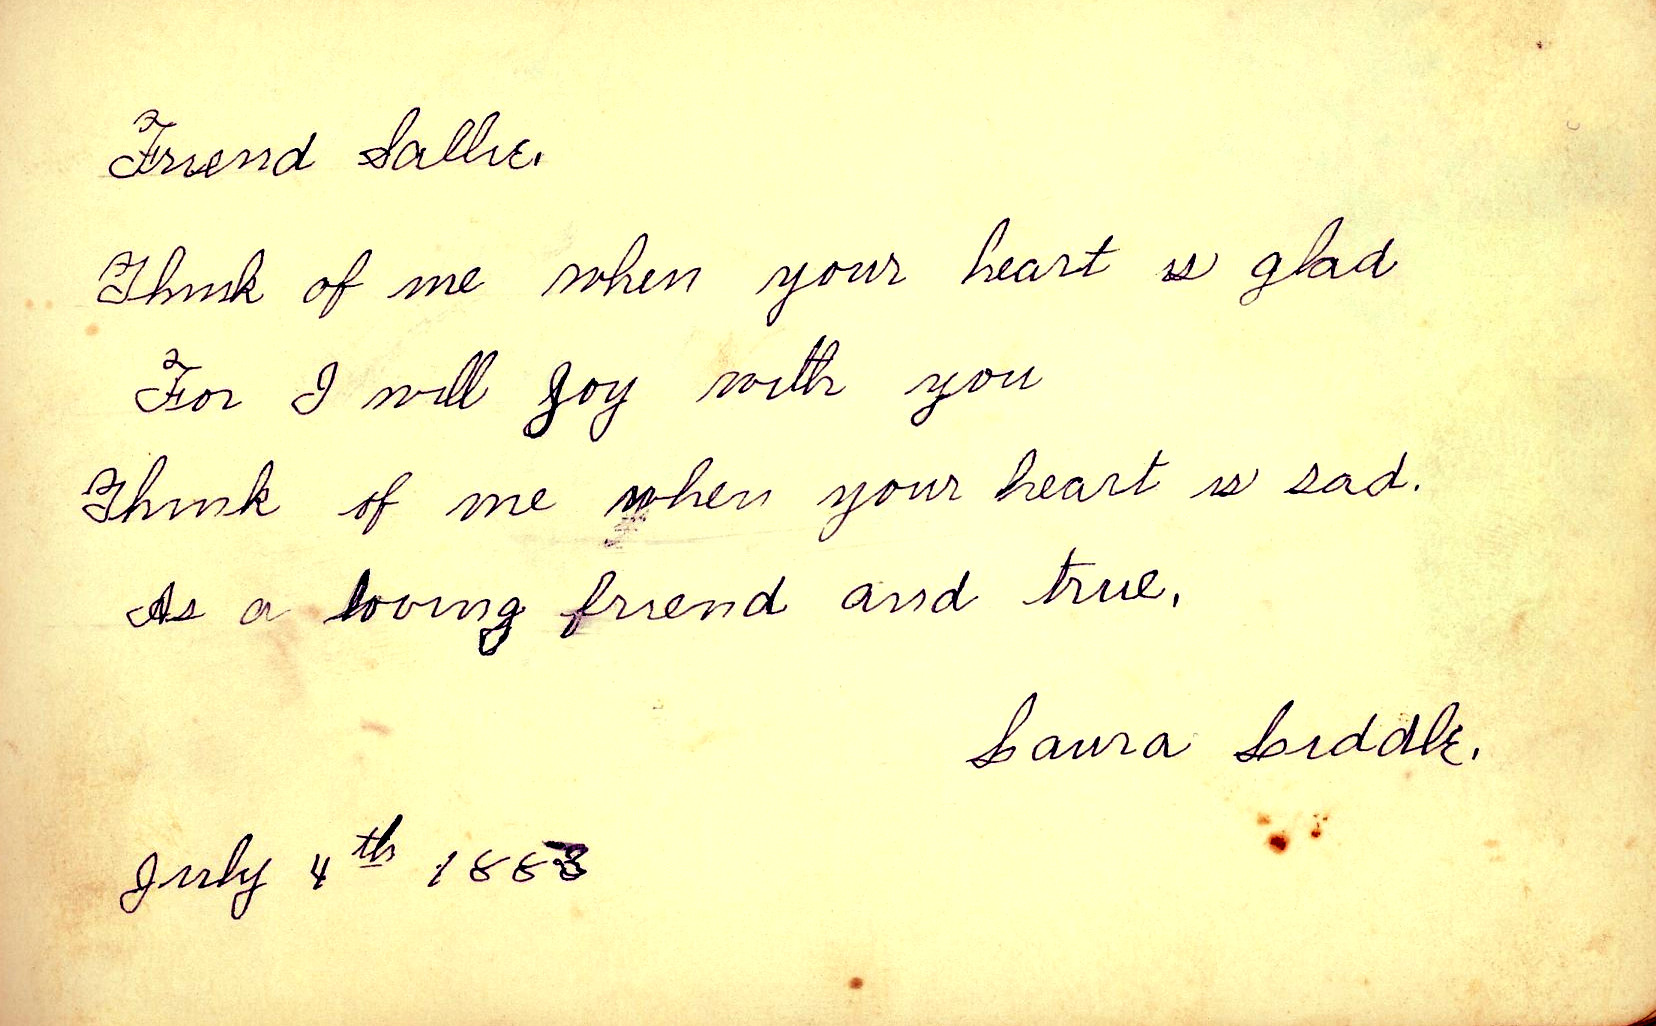 Friend Sallie.
Think of me when your heart is glad
For I will Joy with you
Think of me when your heart is sad.
As a loving friend and true.
Laura Liddle.
July 4th 1883